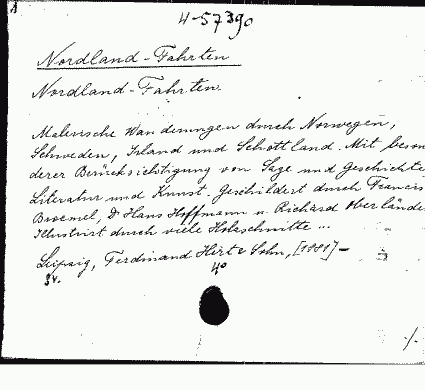 4-57390
Nordland-Fahrten
Nordland-Fahrten.
Malerische Wanderungen durch Norwegen,
Schweden, Irland und Schottland. Mit beson
derer Berücksichtigung von Sage und Geschichte
Literatur und Kunst. Geschildert durch Francis
Broemel, Dr Hans Hoffmann u. Richard Oberlände
Illustrirt durch viele Holzschnitte ...
Leipzig, Ferdinand Hirt & Sohn, [1881] -
4o
./.